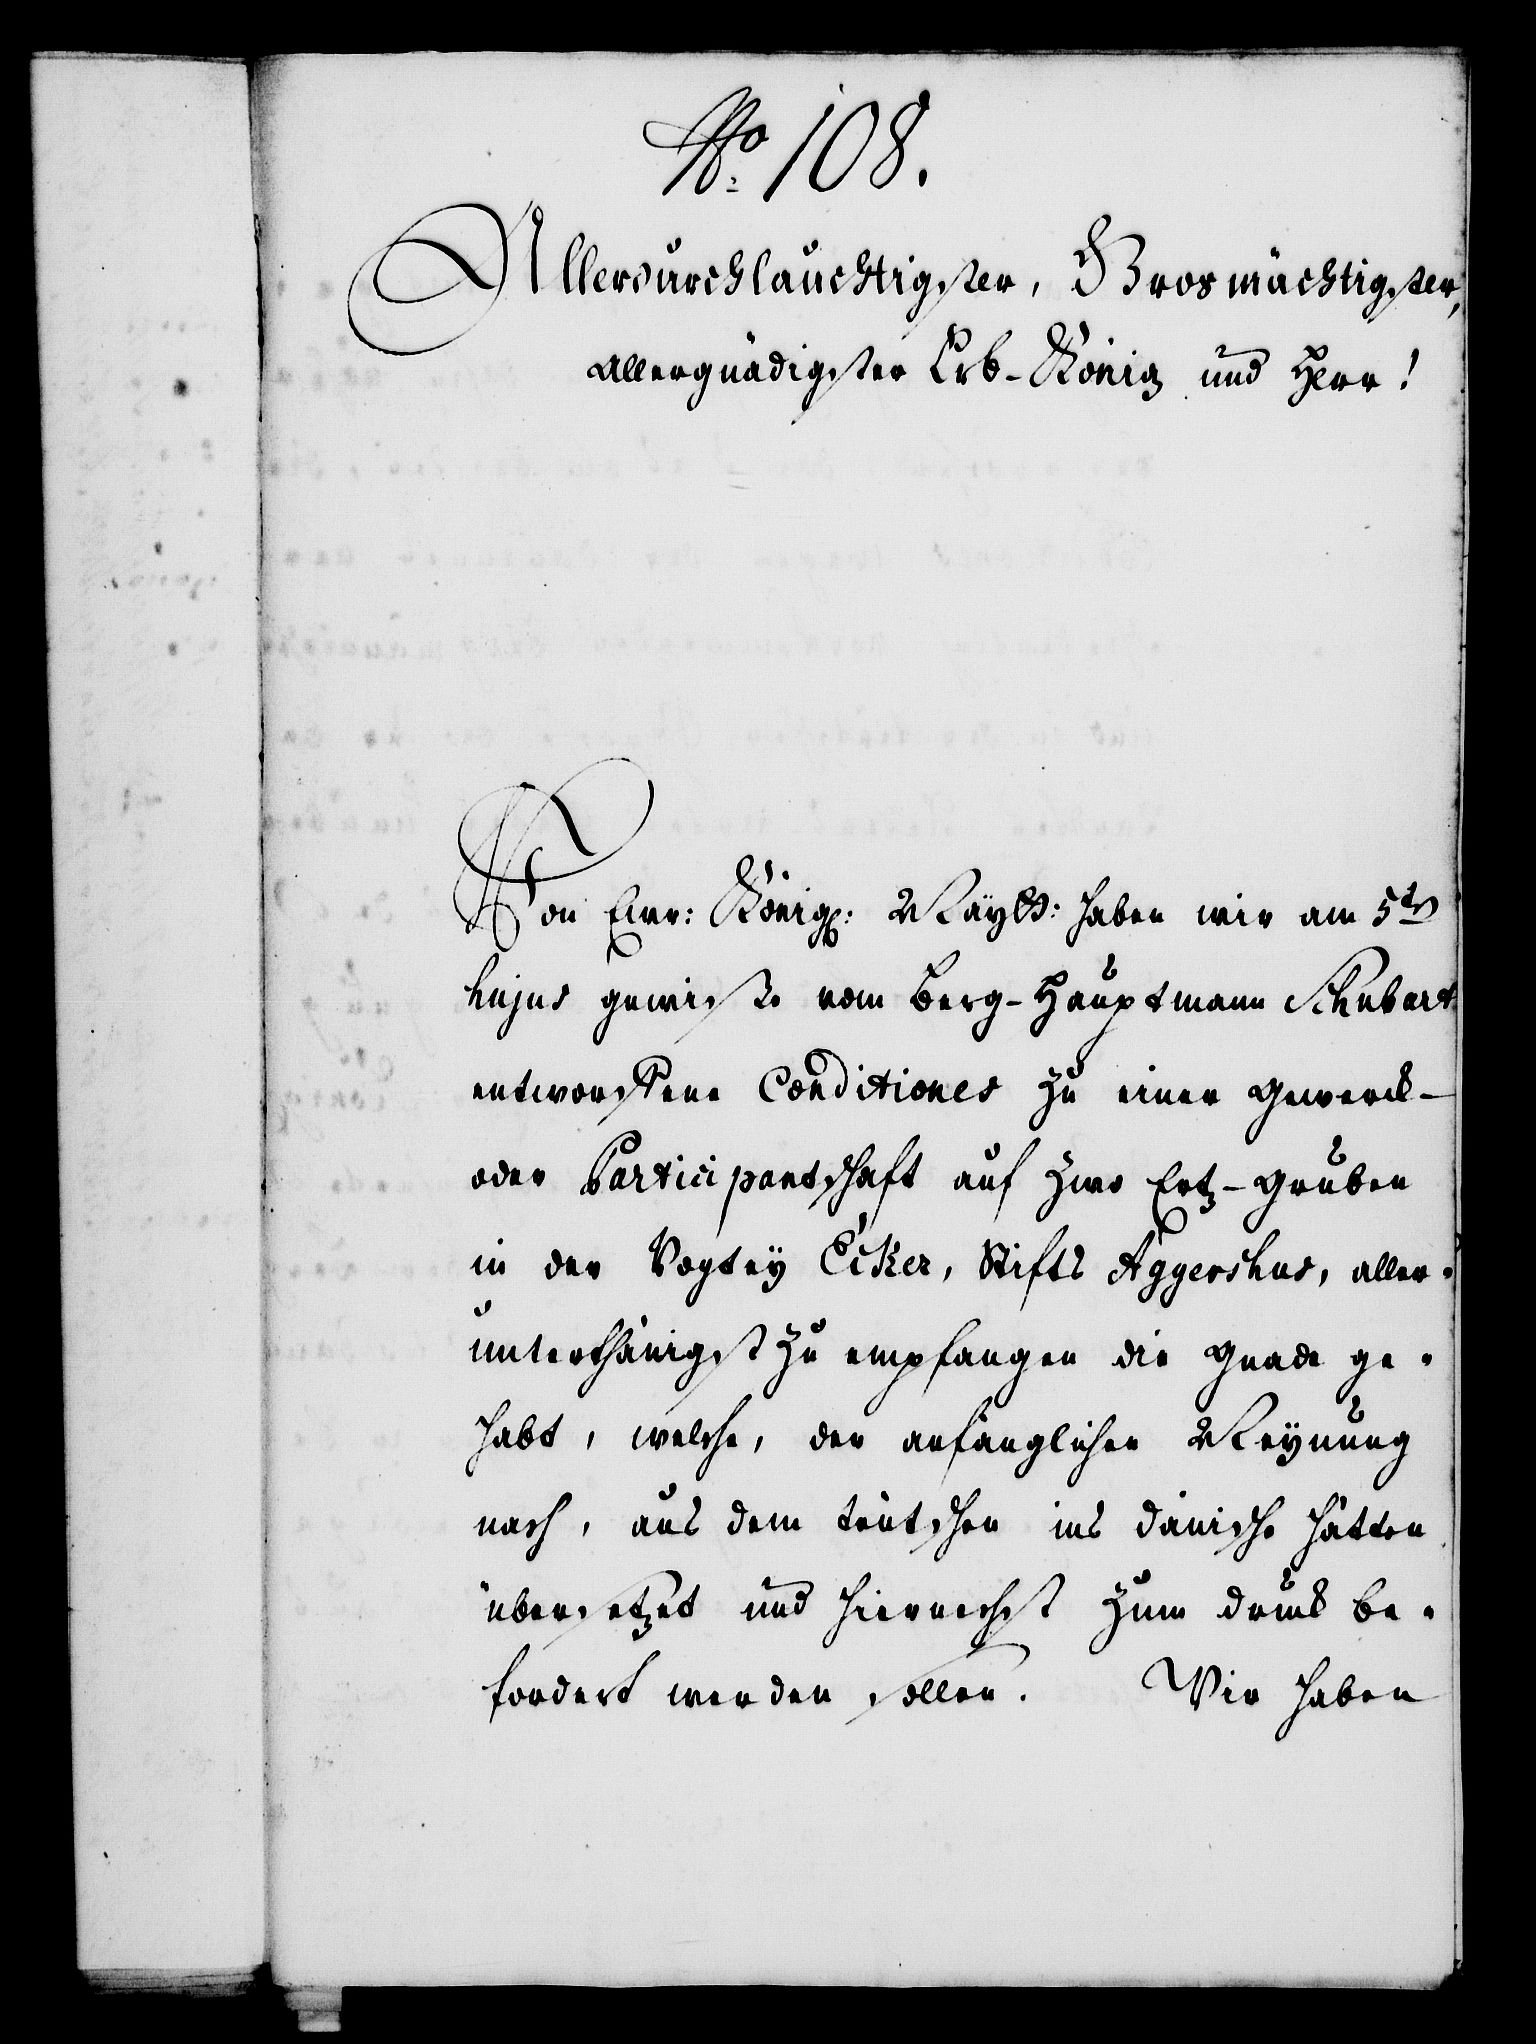 No: 108.
Allerdurchlauchtigster, Grosmächtigster,
allergnädigster Erb-König und Herr!
Von Ewr: Königl: Mayttt: haben wir am 5ten
hujus gewiße vom Berg-Hauptmann Schubart
entworffene Conditiones zu einer Gewerck-
oder Participantschaft auf zwo Ertz-Gruben
in der Vogtey Eiker, Stifts Aggershus, aller-
unterthänigst zu empfangen die Gnade ge-
habt, welche, der anfänglichen Meynung
nach, aus dem teutschen ins dänische hätten
übersetzet und hiernechst zum druck be-
fordert werden sollen. Wir haben